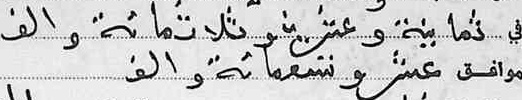 في ثمانية وعشرين وثلاثمائة والف
موافق عشر وتسعمائة والف